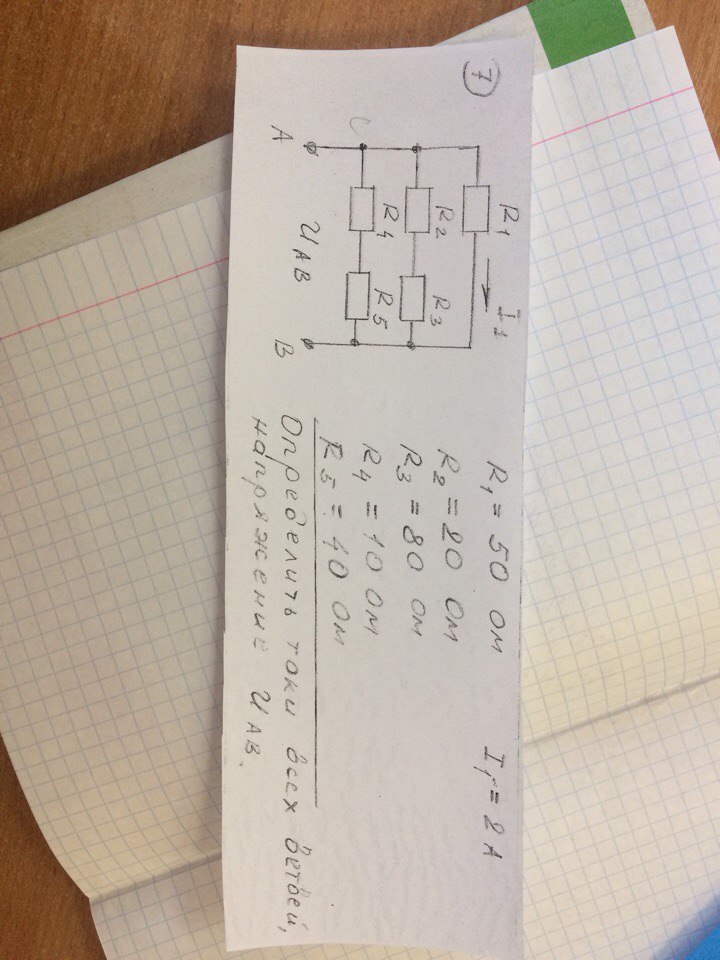 7
R1 I1
R2 R3
R4 R5
C
A UAB B
R1 = 50 Ом I1 = 2 А
R2 = 20 Ом
R3 = 80 Ом
R4 = 10 Ом
R5 = 40 Ом
Определить токи всех ветвей,
напряжение UAB.